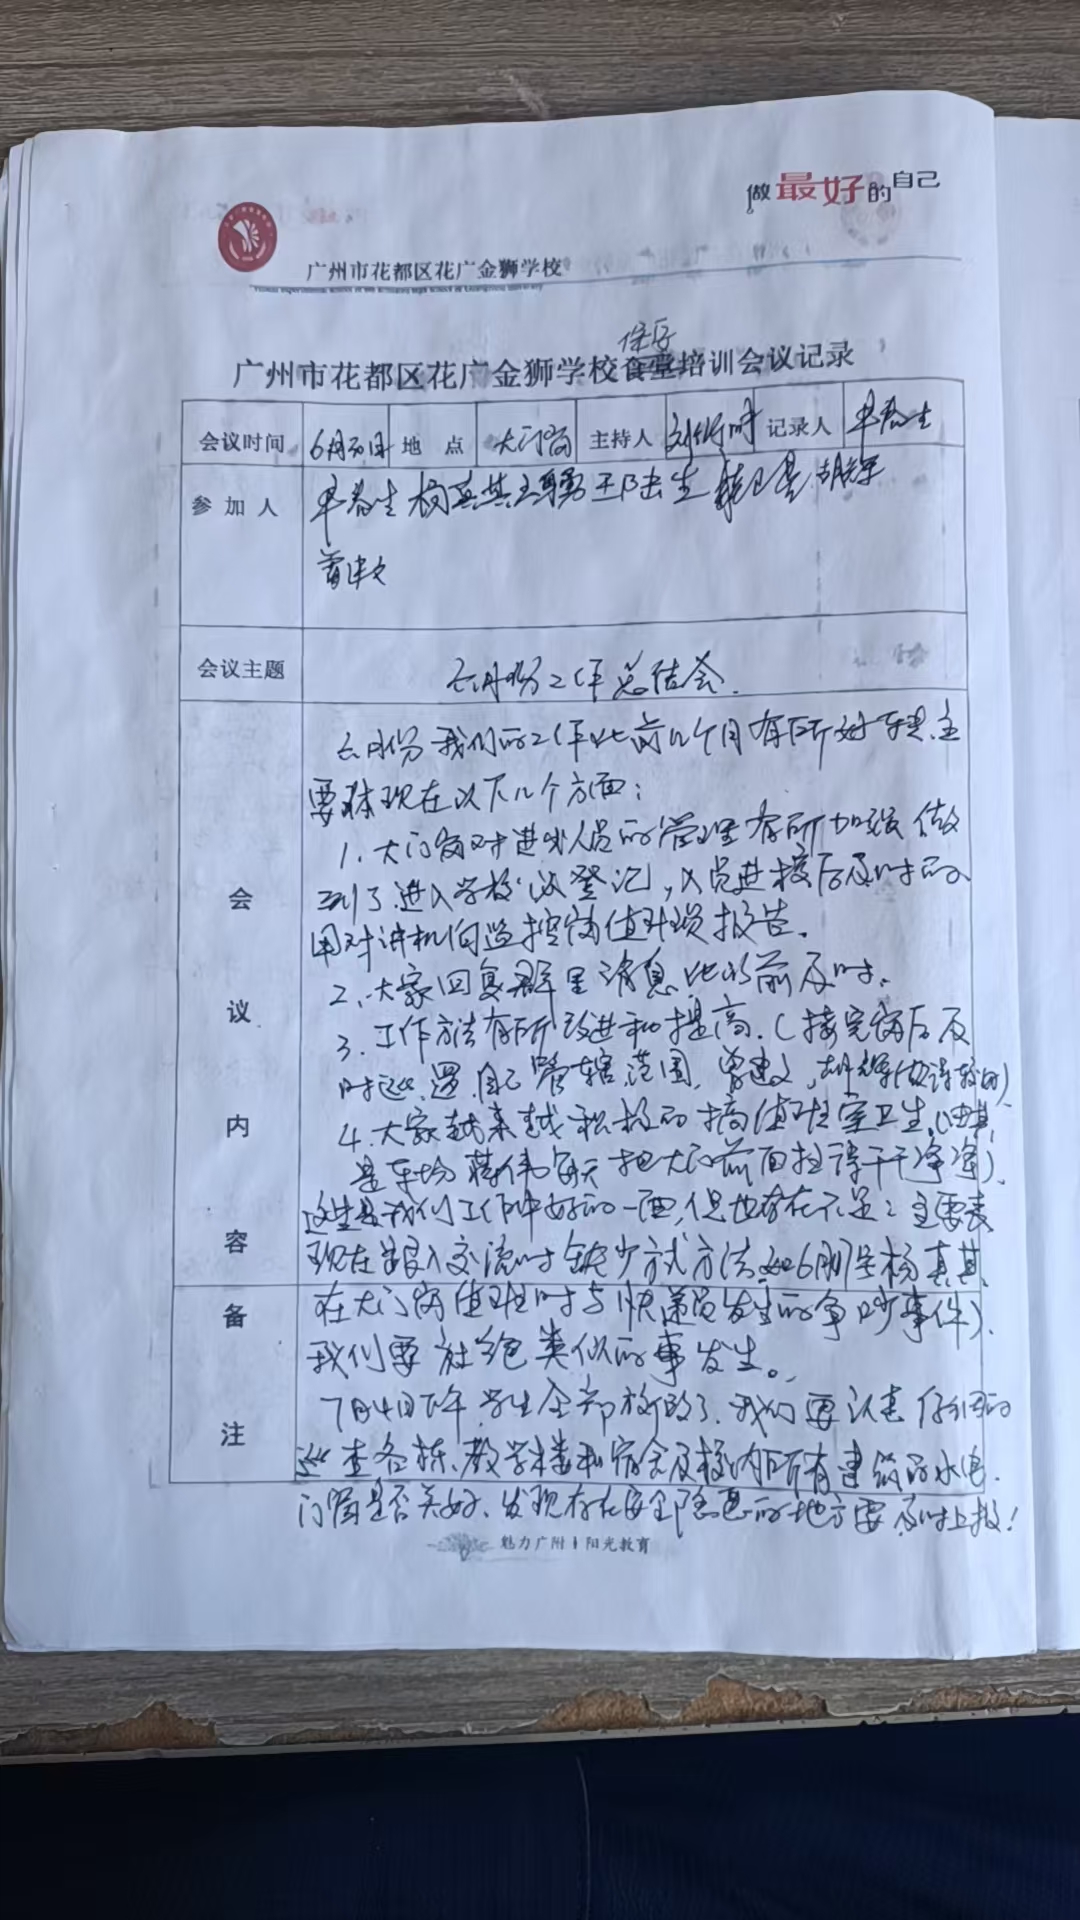 做最好的自己
广州市花都区花广金狮学校
保安
广州市花都区花广金狮学校食堂培训会议记录
会议时间 6月30日 地点 大门岗 主持人 记录人
参加人
曾建文
会议主题 六月份工作总结会.
六月份我们的工作比前几个月有所好转.主
要体现在以下几个方面：
1.大门岗对进出人员的管理有所加强做
到了进入学校必登记，人员进校后及时的
用对讲机向监控岗值班员报告。
2、大家回复群里消息比以前及时.
3.工作方法有所改进和提高.(接完岗后及
时巡逻自己管辖范围,曾建文,
4.大家越来越积极的搞值班室卫生.(尤其
是车场蒋伟每天把大门前面扫得干干净净).
这些是我们工作中好的一面,但也存在不足:主要表
现在与人交流时缺少方式方法.如6月 号杨真其
在大门岗值班时与快递员发生的争吵事件).
我们要杜绝类似的事发生。
7月4日下午学生全部放假了.我们要认真仔细的
巡查各栋、教学楼和宿舍及校内所有建筑的水电.
门窗是否关好.发现存在安全隐患的地方要及时上报!
会议内容
备注
魅力广附 阳光教育